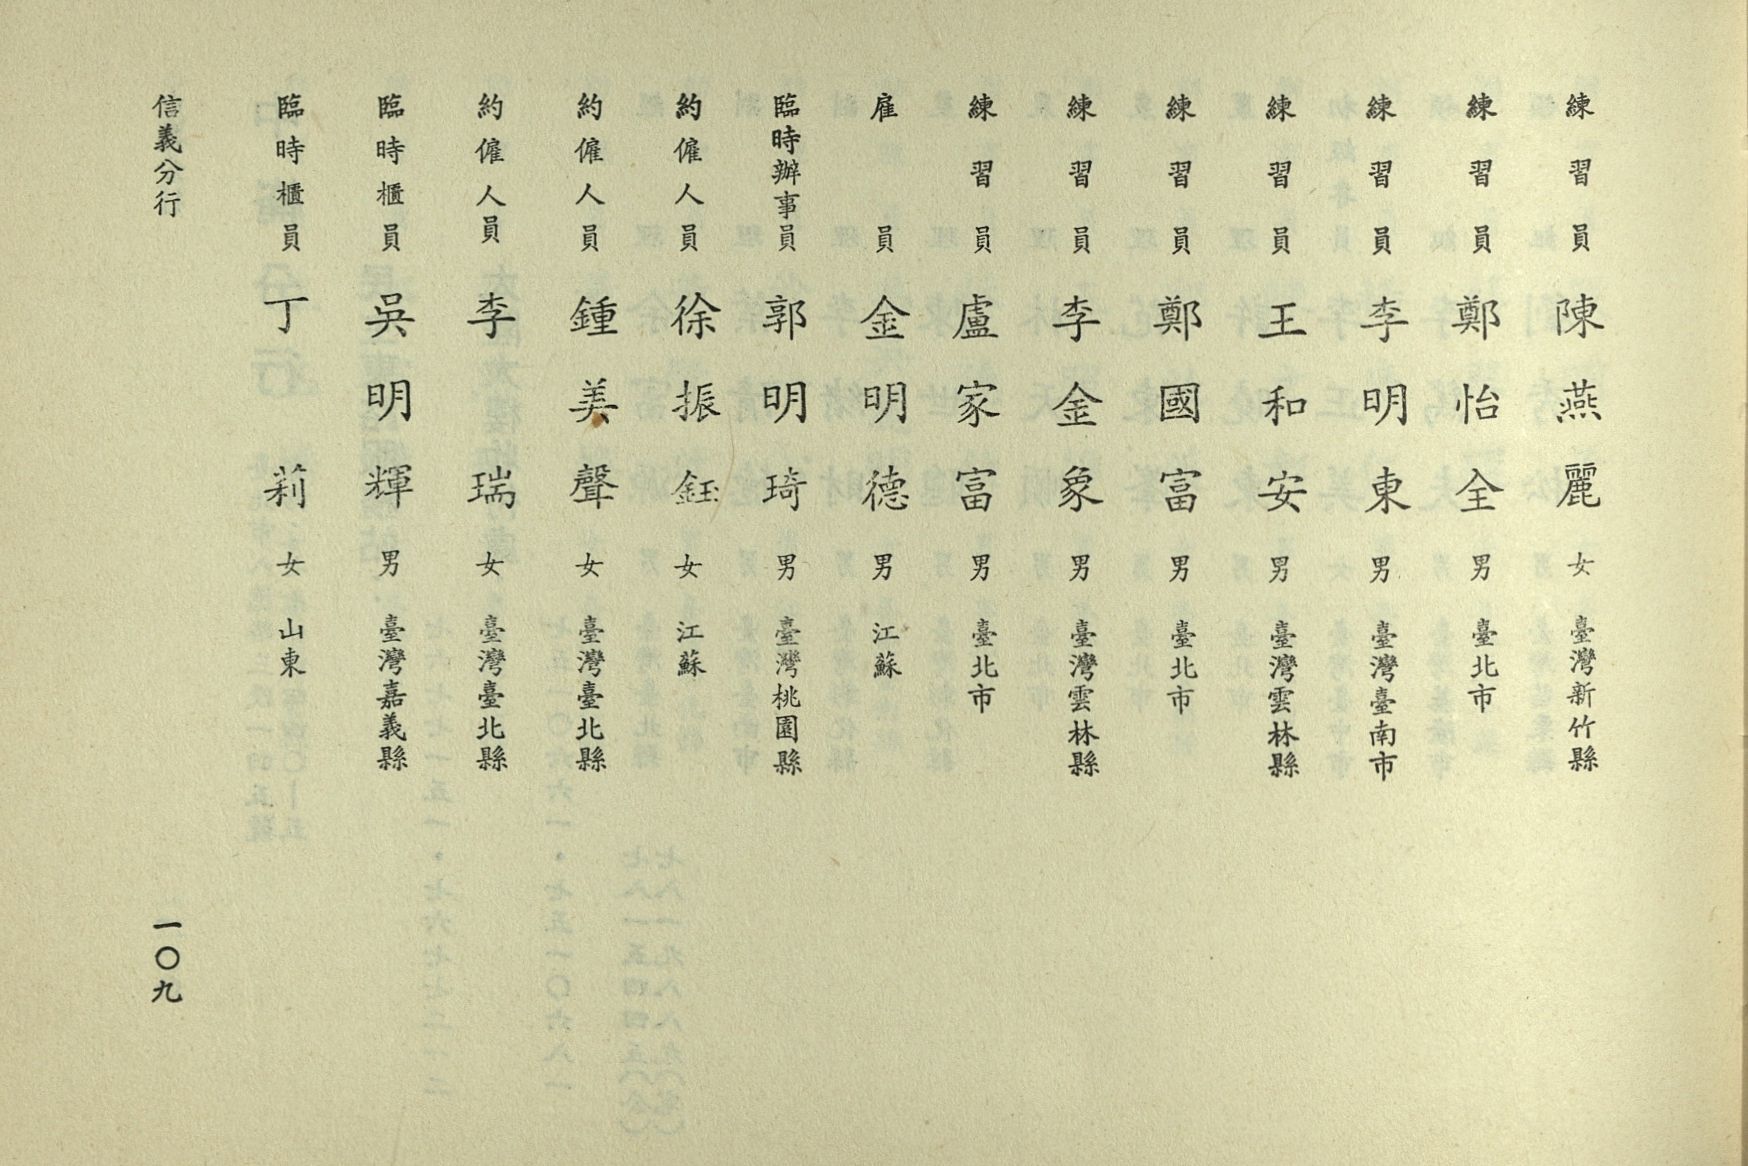 練習員 陳燕麗 女 臺灣新竹縣
練習員 鄭怡全 男 臺北市
練習員 李明東 男 臺灣臺南市
練習員 王和安 男 臺灣雲林縣
練習員 鄭國富 男 臺北市
練習員 李金象 男 臺灣雲林縣
練習員 盧家富 男 臺北市
雇員 金明德 男 江蘇
臨時辦事員 郭明琦 男 臺灣桃園縣
約僱人員 徐振鈺 女 江蘇
約僱人員 鍾美聲 女 臺灣臺北縣
約僱人員 李瑞 女 臺灣臺北縣
臨時櫃員 吳明輝 男 臺灣嘉義縣
臨時櫃員 丁莉 女 山東
信義分行 一〇九